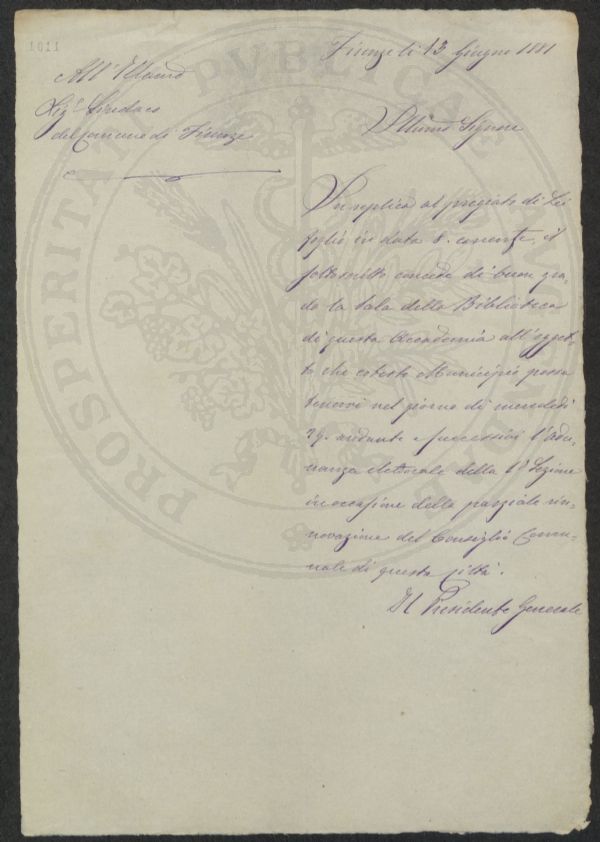 1011
Firenze li 13 Giugno 1881
All' Illmo
Sigr Sindaco
del Comune di Firenze
Illmo Signore
In replica al pregiato di Lei
foglio in data 8. corrente, il
sottoscritto concede di buon gra-
do la Sala della Biblioteca
di questa Accademia all'ogget-
to che codesto Municipio possa
tenervi nel giorno di mercoledì
29. andante e successivi l'adu-
nanza elettorale della 1ª Sezione
in occasione della parziale rin-
novazione del Consiglio Comu-
nale di questa città.
Il Presidente Generale
PROSPERITATI PVBLICAE AVGENDAE